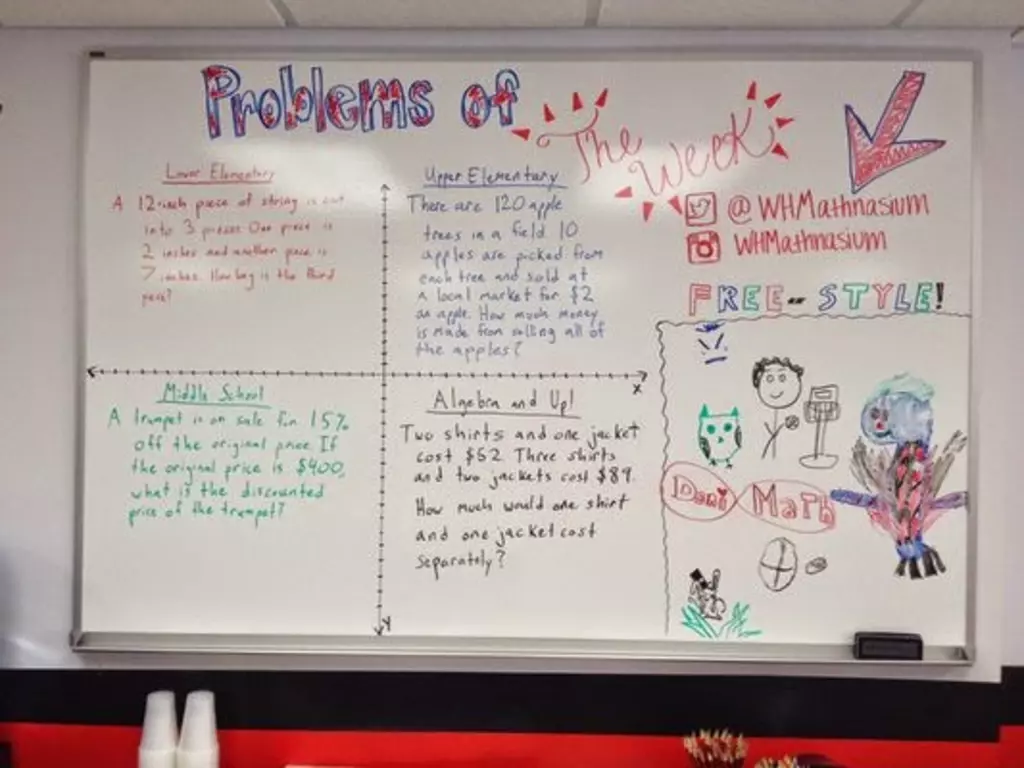 Problems of
The Week
Lower Elementary
A 12-inch piece of string is cut
into 3 pieces. One piece is
2 inches and another piece is
7 inches. How long is the third
piece?
Upper Elementary
There are 120 apple
trees in a field. 10
apples are picked from
each tree and sold at
a local market for $2
an apple. How much money
is made from selling all of
the apples?
X
Middle School
A trumpet is on sale for 15%
off the original price. If
the original price is $400,
what is the discounted
price of the trumpet?
Algebra and Up!
Two shirts and one jacket
cost $52. Three shirts
and two jackets cost $89.
How much would one shirt
and one jacket cost
separately?
Y
@WHMathnasium
WHMathnasium
FREE-STYLE!
Math